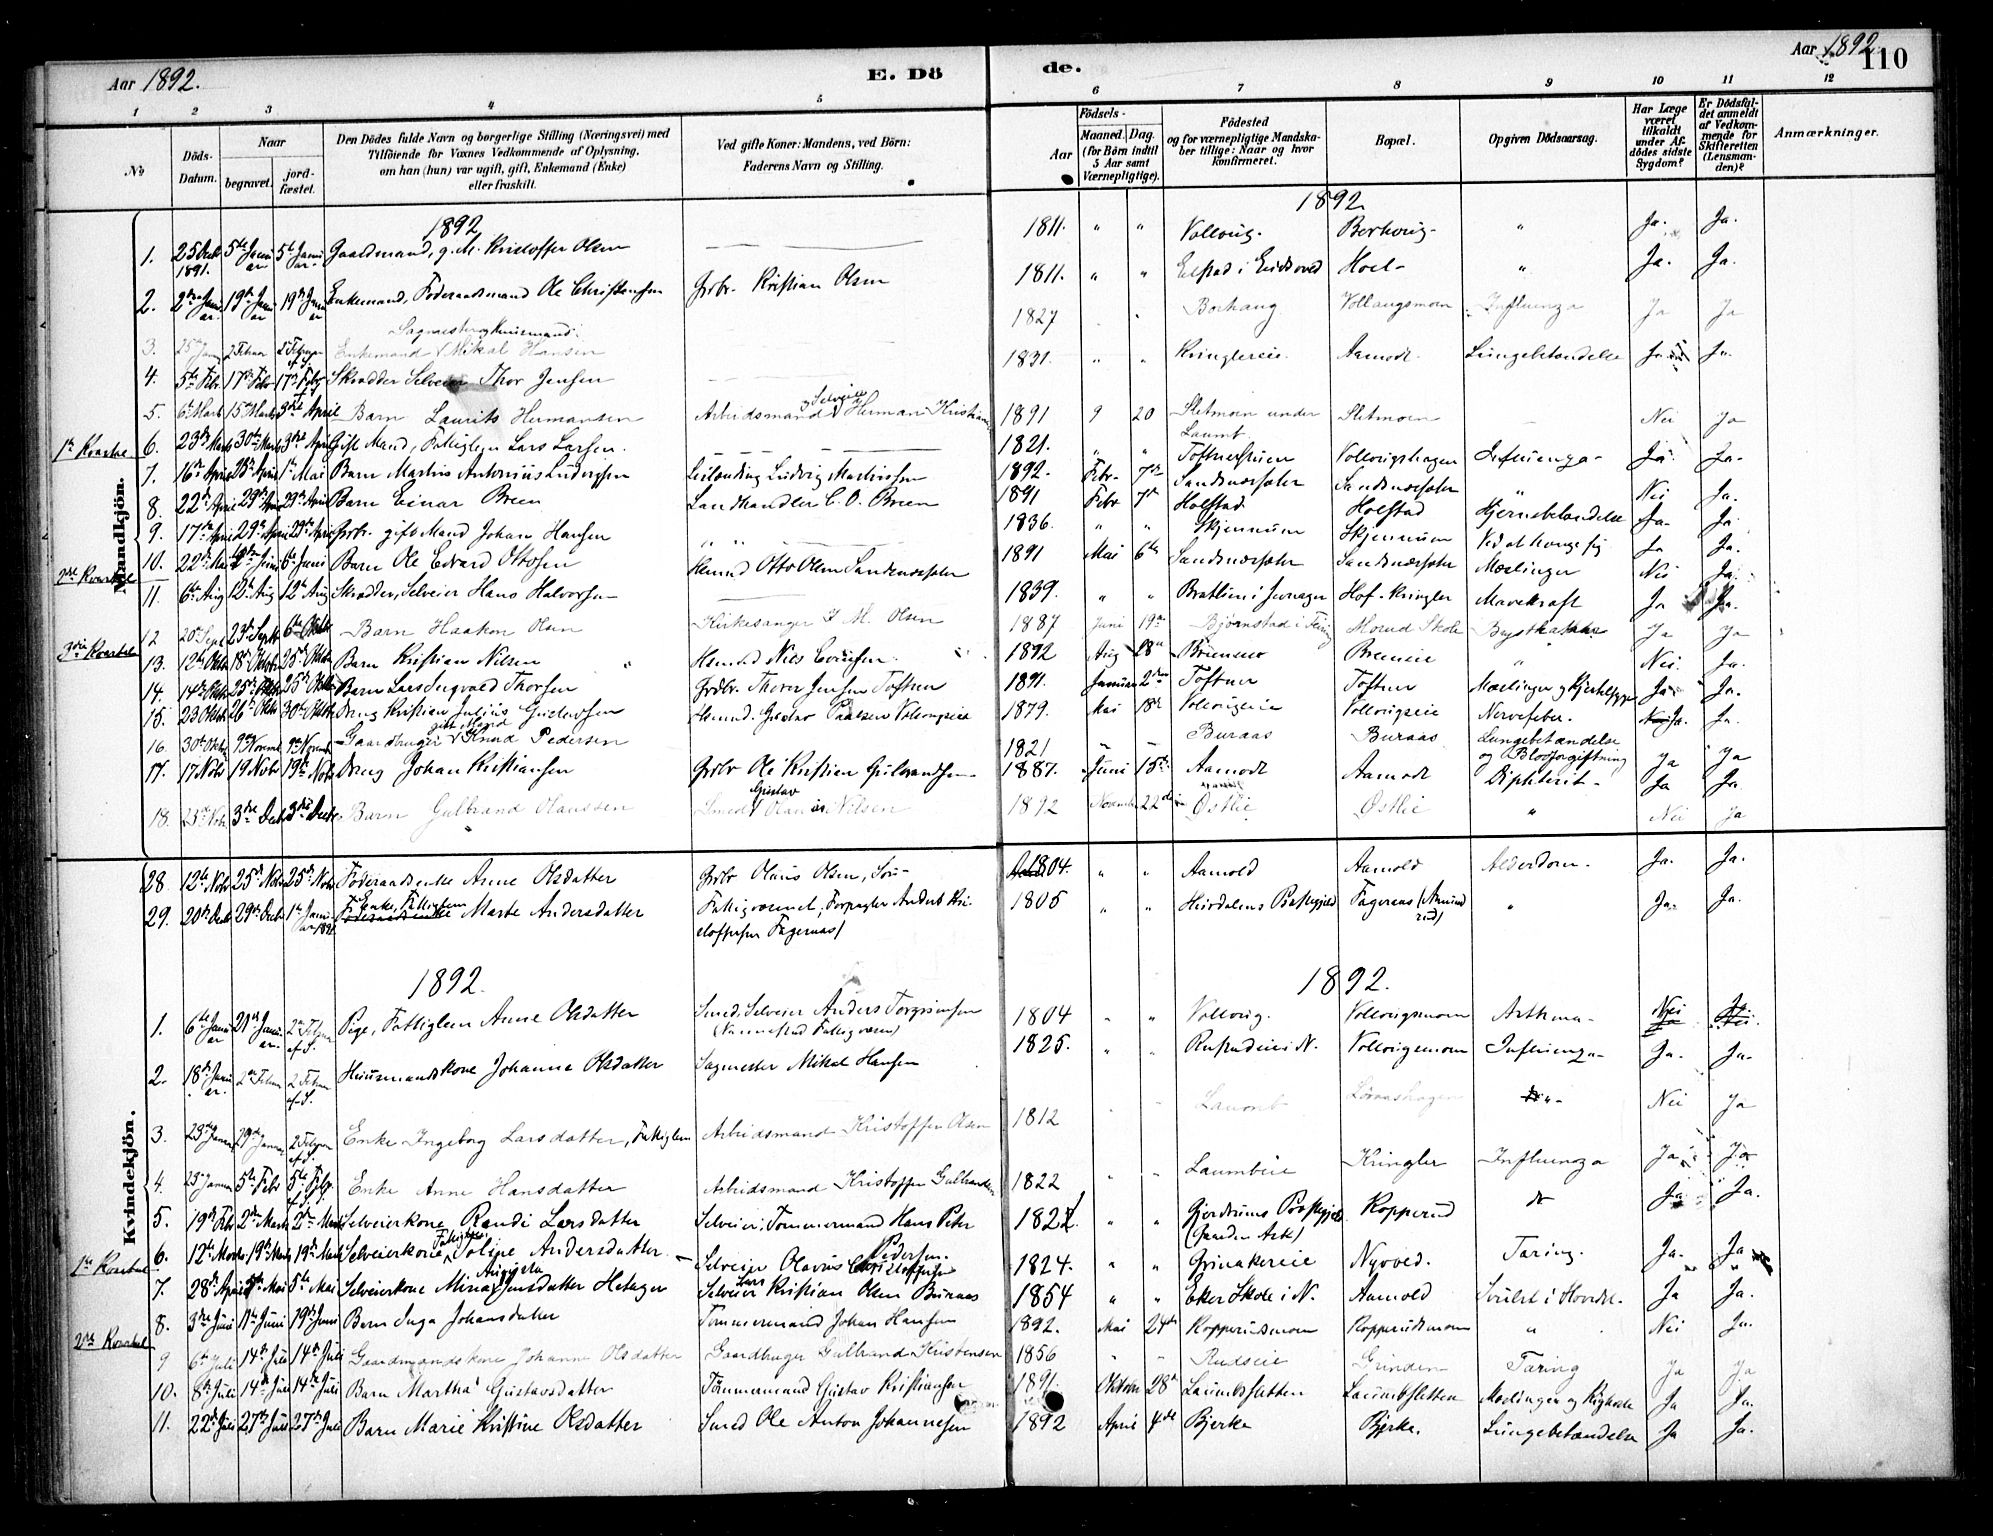 Aar 1892.
E. Dö
de.
Aar 1892
110
1 2 3 4 5 6 7 8 9 10 11 12
No
Döds-Datum.
Naar
begravet.
jordfæstet.
Den Dödes fulde Navn og borgerlige Stilling (Næringsvei) med
Tilföiende for Voxnes Vedkommende af Oplysning,
om han (hun) var ugift, gift, Enkemand (Enke)
eller fraskilt.
Ved gifte Koner: Mandens, ved Börn:
Faderens Navn og Stilling.
Födsels-
Aar
Maaned. Dag.
(for Börn indtil
5 Aar samt
Værnepligtige).
Födested
og for værnepligtige Mandskaber tillige: Naar og hvor
konfirmeret.
Bopæl.
Opgiven Dödsaarsag.
Har Læge
været
tilkaldt
under Afdödes sidste
Sygdom?
Er Dödsfaldet anmeldt
af Vedkommende for
Skifteretten
(Lensmanden)?
Anmærkninger.
Mandkjön.
1892
1892.
1. 25 Decb 1891. 5te Januar 5te Januar Gaardmand, g. M. Kristoffer Olsen 1811. " " Vollaug Borhaug " Ja. Ja.
2. 2den Januar 19de Januar 19de Januar Enkemand, Føderaadsmand Ole Christensen Grdbr. Kristian Olsen 1811. " " Hoel " Ja. Ja.
3. 25de Januar 2 Februar Sagmester og Huusmand Enkemand Mikal Hansen 1827 Borhaug Vollaugsmoen Influenza Ja Ja
4. 5te Febr. 17de Febr 17de Febr Skrædder Selveier Thor Jensen 1831. " " Kringlereie Aamodt Lungebetændelse Ja Ja.
5. 6te Marts 15de Marts 3die April Barn Laurits Hermansen Arbeidsmand og Selveier Herman Kristian 1891 9 20 Sletmoen under Laumb Sletmoen Nei Ja
1ste Kvartal 6. 23de Marts 30te Marts 3die April Gift Mand, Fattiglem Lars Larsen. 1821. " " Toftnerstuen Vollaugshagen Influenza Ja. Ja.
7. 16de April 28de April 1ste Mai Barn Martin Antonius Ludvigsen Leilænding Ludvig Martinsen 1892. Febr. 7de Sandsnæsseter Sandsnæsseter " Nei Ja.
8. 22de April 29de April 29de April Barn Einar Breen Landhandler C. O. Breen 1891 Febr 7de Holstad Holstad Hjernebetændelse Ja. Ja.
9. 17de April 29de April 29de April Grdbr. gift Mand Johan Hansen 1836. " " Skjennum Skjennum Ved at hænge sig Ja Ja.
2det Kvartal 10. 22de Mai 6te Juni Barn Ole Edvard Ottosen Hsmnd Otto Olsen Sandsnæsseter 1891 Mai 6te Sandsnæsseter Sandsnæsseter Mæslinger Nei Ja.
11. 6te Aug 12te Aug 12te Aug Skrædder, Selveier Hans Halvorsen 1839. " " Brotlien i Jevnager Hof-Kringler Mavekræft Ja Ja.
3die Kvartal 12 20de Sept 23de Septb 6te Oktbr Barn Haakon Olsen Kirkesanger J. M. Olsen 1887 Juni 19de Bjørnstad i Hørud Skole Ja Ja
13. 12te Oktbr 18de Oktbr 25de Oktbr Barn Kristian Nilsen Hsmnd Nils Evensen 1892 Aug 28de " Nei. Ja.
14. 14de Oktbr 25de Oktbr 25de Oktbr Barn Lars Ingvald Thorsen Grdbr. Thorer Jensen Toftner 1891. Januar 2den Toftner Toftner Mæslinger og Ja Ja.
15. 23 Oktbr 26de Oktbr 30te Oktbr Dreng Kristian Julius Gustavsen Hsmnd. Gustav Paulsen Vollaugseie 1879. Mai 18de Vollaugseie Vollaugseie Nervefeber. Ja. Ja.
16. 30te Oktbr 9de Novemb 9de Novemb Gaardbruger gift Mand Knud Pedersen 1821 Buraas Buraas Lungebetændelse og Blodforgiftning Ja Ja
17. 17 Nobr 19 Nobr 19de Nobr Dreng Johan Kristiansen Grdbr Ole Kristian Gulbrandsen 1887. Juni 15de Aamodt Aamodt Diphterit Ja Ja.
18. 23de Nobr 3die Decb 3die Decb. Barn Gulbrand Olaussen Smed Gustav Olaus Nilsen 1892 November 22de Østlie Østlie " Nei Ja
Kvindekjön.
28 12te Nobr 25de Nobr 25de Nobr Føderaadsenke Anne Olsdatter Grdbr Olaus Olsen, Søn 1804. " " Aamold Aamold Alderdom. Ja. Ja.
29. 20de Decb 29de Decb 1ste Januar 1892 Enke, Fattiglem Marte Andersdatter Fattigvæsenet; Forpagter Anders Kristoffersen Fageraas) 1805 " " Hurdalens Præstegjeld Fageraas (Aamund rud) " Ja. Ja.
1892.
1892.
1. 6te Januar 21de Januar 2den Februar Pige, Fattiglem Anne Olsdatter Smed, Selveier Anders Torgrimsen (Nannestad Fattigvæsen) 1804 " " Vollaug. Vollaugsmoen Asthma Nei
2. 18de Januar 2den Februar 2 Februar Huusmandskone Johanne Olsdatter Sagmester Mikal Hansen 1825. " " N. Vollaugsmoen Influenza Ja. Ja.
3. 23de Januar 29de Januar 2 Februar Enke Ingeborg Larsdatter, Fattiglem Arbeidsmand Kristoffer Olsen 1812 Laumb Nei Ja
4. 25 Januar 5te Febr 5te Febr Enke Anne Hansdatter Arbeidsmand Kristoffer Gulbrandsen 1822 Laumbeie Kringler Influenza Ja Ja
5. 19de Febr 2den Marts 2den Marts Selveierkone Randi Larsdatter Selveier, Tømmermand Hans Peter Pedersen. 1822 " " Gjerdrums Præstegjeld (Gaarden Ask) Kopperud do Ja Ja.
1ste Kvartal 6. 12te Marts 19de Marts 19de Marts Selveierkone Fattiglem Andersdatter Selveier Olavus Christoffersen 1824. " " Grinakereie Nyoved. Tæring. Ja. Ja
7. 28de April 5te Mai 5te Mai Selveierkone Mina Augusta Jensdatter Hetager Selveier Lars Kristian Olsen Buraas 1854 " " Eker Skole i N. Aamold Svulst i Hovedet. Ja Ja.
2det Kvartal 8. 3die Juni 11te Juni 19de Juni Barn Inga Johansdatter Tømmermand Johan Hansen 1892. Mai 24de Kopperudsmoen Kopperudsmoen " Nei Ja.
9 6te Juli 14de Juli 14de Juli Gaardmandskone Johanne Olsdatter Gaardbruger Gulbrand Kristensen 1856 " " Rudseie Grinden Tæring Ja Ja
10. 8de Juli 14de Juli 14de Juli Barn Martha Gustavsdatter Tømmermand Gustav Kristiansen 1891. Oktober 28de Laumbsletten Laumbsletten Mæslinger og Kighoste Ja Ja.
11. 22de Juli 27de Juli 27de Juli Barn Marie Kristine Olsdatter Smed Ole Anton Johannesen 1892 April 4de Bjerke Bjerke. Lungebetændelse Ja Ja.